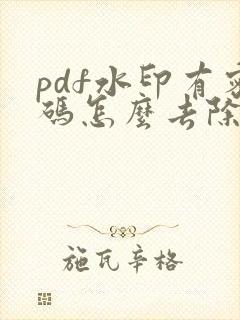 pdf水印有密
码怎麽去除
施瓦辛格